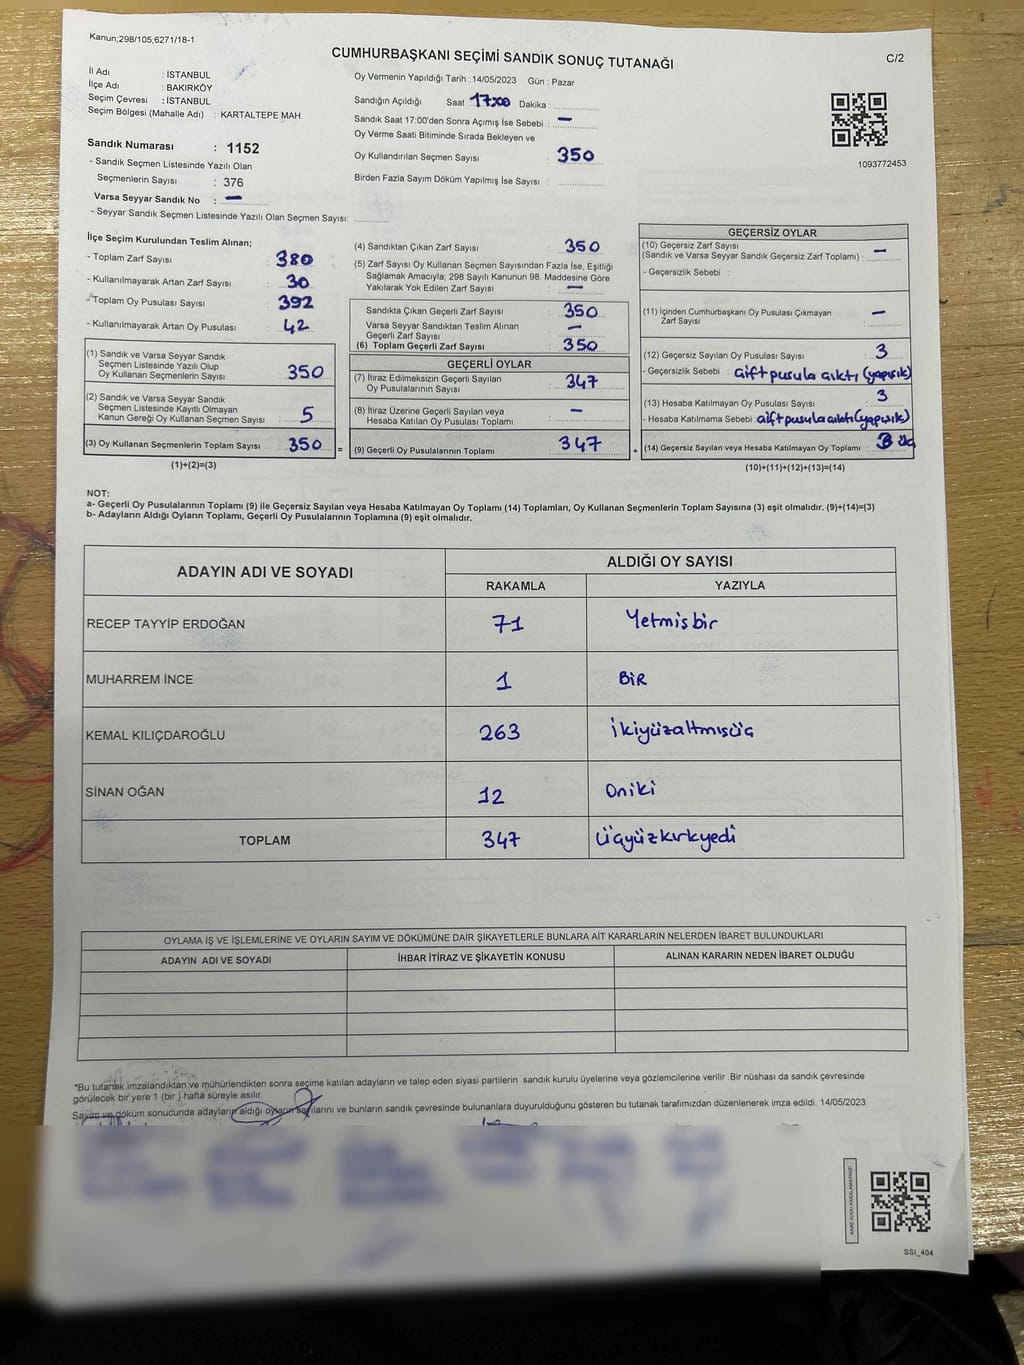 Kanun;298/105;6271/18-1
C/2
CUMHURBAŞKANI SEÇİMİ SANDIK SONUÇ TUTANAĞI
İl Adı : İSTANBUL
İlçe Adı : BAKIRKÖY
Seçim Çevresi : İSTANBUL
Seçim Bölgesi (Mahalle Adı) : KARTALTEPE MAH.
Oy Vermenin Yapıldığı Tarih :14/05/2023 Gün : Pazar
Sandığın Açıldığı Saat 17:00 Dakika :
Sandık Saat 17:00'den Sonra Açımış İse Sebebi : —
Oy Verme Saati Bitiminde Sırada Bekleyen ve
Oy Kullandırılan Seçmen Sayısı : 350
Birden Fazla Sayım Döküm Yapılmış İse Sayısı :
1093772453
Sandık Numarası : 1152
- Sandık Seçmen Listesinde Yazılı Olan
Seçmenlerin Sayısı : 376
Varsa Seyyar Sandık No : —
- Seyyar Sandık Seçmen Listesinde Yazılı Olan Seçmen Sayısı:
İlçe Seçim Kurulundan Teslim Alınan;
- Toplam Zarf Sayısı : 380
- Kullanılmayarak Artan Zarf Sayısı : 30
- Toplam Oy Pusulası Sayısı : 392
- Kullanılmayarak Artan Oy Pusulası : 42
(1) Sandık ve Varsa Seyyar Sandık
Seçmen Listesinde Yazılı Olup
Oy Kullanan Seçmenlerin Sayısı : 350
(2) Sandık ve Varsa Seyyar Sandık
Seçmen Listesinde Kayıtlı Olmayan
Kanun Gereği Oy Kullanan Seçmen Sayısı : 5
(3) Oy Kullanan Seçmenlerin Toplam Sayısı : 350
(1)+(2)=(3)
=
(4) Sandıktan Çıkan Zarf Sayısı : 350
(5) Zarf Sayısı Oy Kullanan Seçmen Sayısından Fazla İse, Eşitliği
Sağlamak Amacıyla; 298 Sayılı Kanunun 98. Maddesine Göre
Yakılarak Yok Edilen Zarf Sayısı : —
Sandıkta Çıkan Geçerli Zarf Sayısı : 350
Varsa Seyyar Sandıktan Teslim Alınan
Geçerli Zarf Sayısı : —
(6) Toplam Geçerli Zarf Sayısı : 350
GEÇERLİ OYLAR
(7) İtiraz Edilmeksizin Geçerli Sayılan
Oy Pusulalarının Sayısı : 347
(8) İtiraz Üzerine Geçerli Sayılan veya
Hesaba Katılan Oy Pusulası Toplamı : —
(9) Geçerli Oy Pusulalarının Toplamı : 347
+
GEÇERSİZ OYLAR
(10) Geçersiz Zarf Sayısı
(Sandık ve Varsa Seyyar Sandık Geçersiz Zarf Toplamı) : —
- Geçersizlik Sebebi :
(11) İçinden Cumhurbaşkanı Oy Pusulası Çıkmayan
Zarf Sayısı : —
(12) Geçersiz Sayılan Oy Pusulası Sayısı : 3
- Geçersizlik Sebebi : Çift pusula çıktı (yapışık)
(13) Hesaba Katılmayan Oy Pusulası Sayısı : 3
- Hesaba Katılmama Sebebi : çift pusula çıktı (yapışık)
(14) Geçersiz Sayılan veya Hesaba Katılmayan Oy Toplamı : 3 üç
(10)+(11)+(12)+(13)=(14)
NOT:
a- Geçerli Oy Pusulalarının Toplamı (9) ile Geçersiz Sayılan veya Hesaba Katılmayan Oy Toplamı (14) Toplamları, Oy Kullanan Seçmenlerin Toplam Sayısına (3) eşit olmalıdır. (9)+(14)=(3)
b- Adayların Aldığı Oyların Toplamı, Geçerli Oy Pusulalarının Toplamına (9) eşit olmalıdır.
ADAYIN ADI VE SOYADI
ALDIĞI OY SAYISI
RAKAMLA
YAZIYLA
RECEP TAYYİP ERDOĞAN 71 Yetmişbir
MUHARREM İNCE 1 BİR
KEMAL KILIÇDAROĞLU 263 ikiyüzaltmışüç
SİNAN OĞAN 12 Oniki
TOPLAM 347 Üçyüzkırkyedi
OYLAMA İŞ VE İŞLEMLERİNE VE OYLARIN SAYIM VE DÖKÜMÜNE DAİR ŞİKAYETLERLE BUNLARA AİT KARARLARIN NELERDEN İBARET BULUNDUKLARI
ADAYIN ADI VE SOYADI
İHBAR İTİRAZ VE ŞİKAYETİN KONUSU
ALINAN KARARIN NEDEN İBARET OLDUĞU
*Bu tutanak imzalandıktan ve mühürlendikten sonra seçime katılan adayların ve talep eden siyasi partilerin sandık kurulu üyelerine veya gözlemcilerine verilir .Bir nüshası da sandık çevresinde
görülecek bir yere 1 (bir ) hafta süreyle asılır.
Sayım ve döküm sonucunda adayların aldığı oyların sayılarını ve bunların sandık çevresinde bulunanlara duyurulduğunu gösteren bu tutanak tarafımızdan düzenlenerek imza edildi. 14/05/2023
KARE KODU KARALAMAYINIZ!
SSI_404